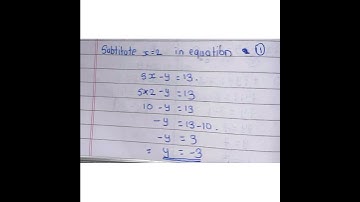 Subtitate x=2 in equation ①
5x - y = 13.
5×2 - y = 13
10 - y = 13
-y = 13 - 10.
-y = 3
= y = -3